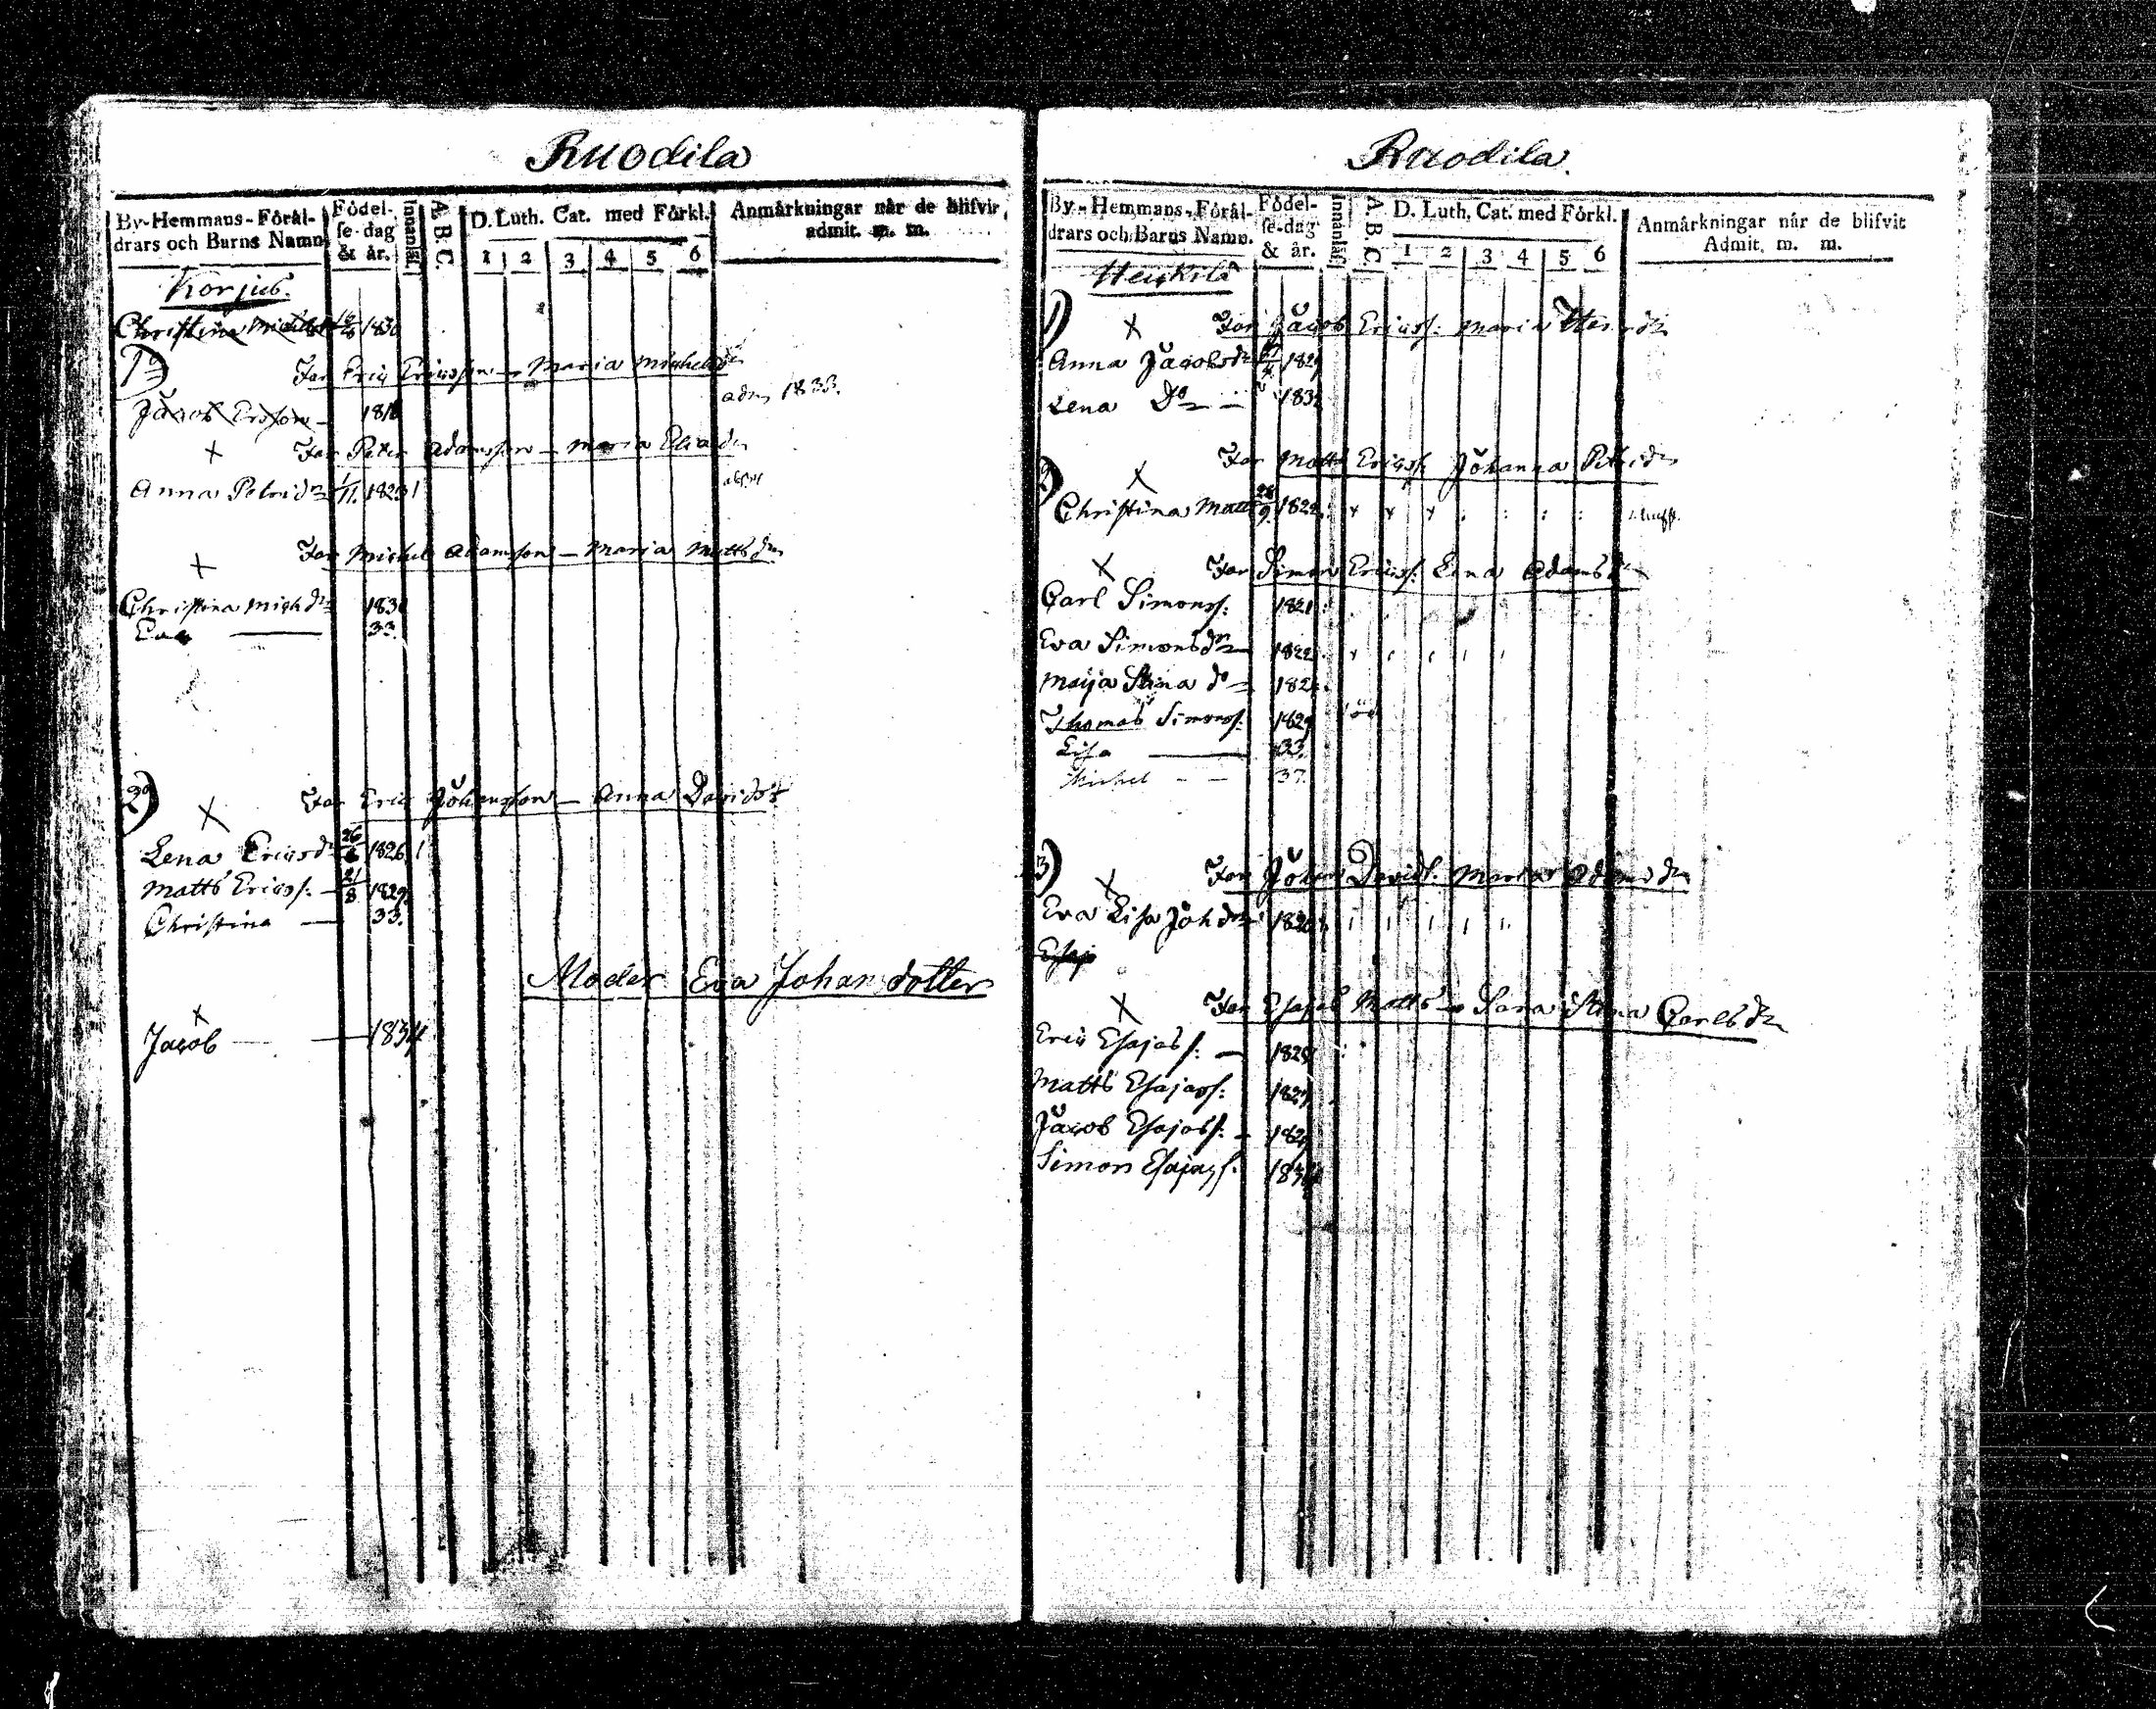 Ruodila
By-Hemmans-Föräl-
drars och Barns Namn.
Födel-
se-dag
& år.
Innanläs.
A. B. C.
D. Luth. Cat. med Förkl.
1 2 3 4 5 6
Anmärkningar når de blifvit
admit. m. m.
Korjus.
Christina 1830
1º)
För Eric Ericsson — Maria Michelsdr
Jacob Ersson — 1818 adm 1833.
x För Peter Adamsson — Maria Eliadr
Anna Petridr 1/11 1823
x För Michel Adamsson — Maria Mattsdr
Christina Michdr 1830
Eva — 33.
2º) x För Eric Johansson — Anna Davidsdr
Lena Ericsdr 26/6 1826
Matts Ericss. — 21/8 1829
Christina — 33.
Moder Eva Johansdotter
x
Jacob — 1834
Ruodila.
By-Hemmans-Föräl-
drars och Barns Namn.
Födel-
se-dag
& år.
Innanläs.
A. B. C.
D. Luth. Cat. med Förkl.
1 2 3 4 5 6
Anmärkningar når de blifvit
Admit. m. m.
Heikilä
1) x För Jacob Ericss: Maria Henricdr
Anna Jacobsdr 1829
Lena Do — 183
2) x För Matts Ericss. Johanna Petridr
Christina Matts 28/9 1822
x För Simon Ericss: Lena Adamsdr
Carl Simonss: 1821
Eva Simonsdr 1822
Maija Stina do 182
Thomas Simonss. 1829
Lisa — 33.
Michel — — 37.
3) x För Johan Davids. Maria Adamsdr
Eva Lisa Johdr 1820
x För Esajas Matts — Sara Stina Carlsdr
Eric Esajass: — 1824
Matts Esajass: 1827
Jacob Esajass: — 1829
Simon Esajass. 1834